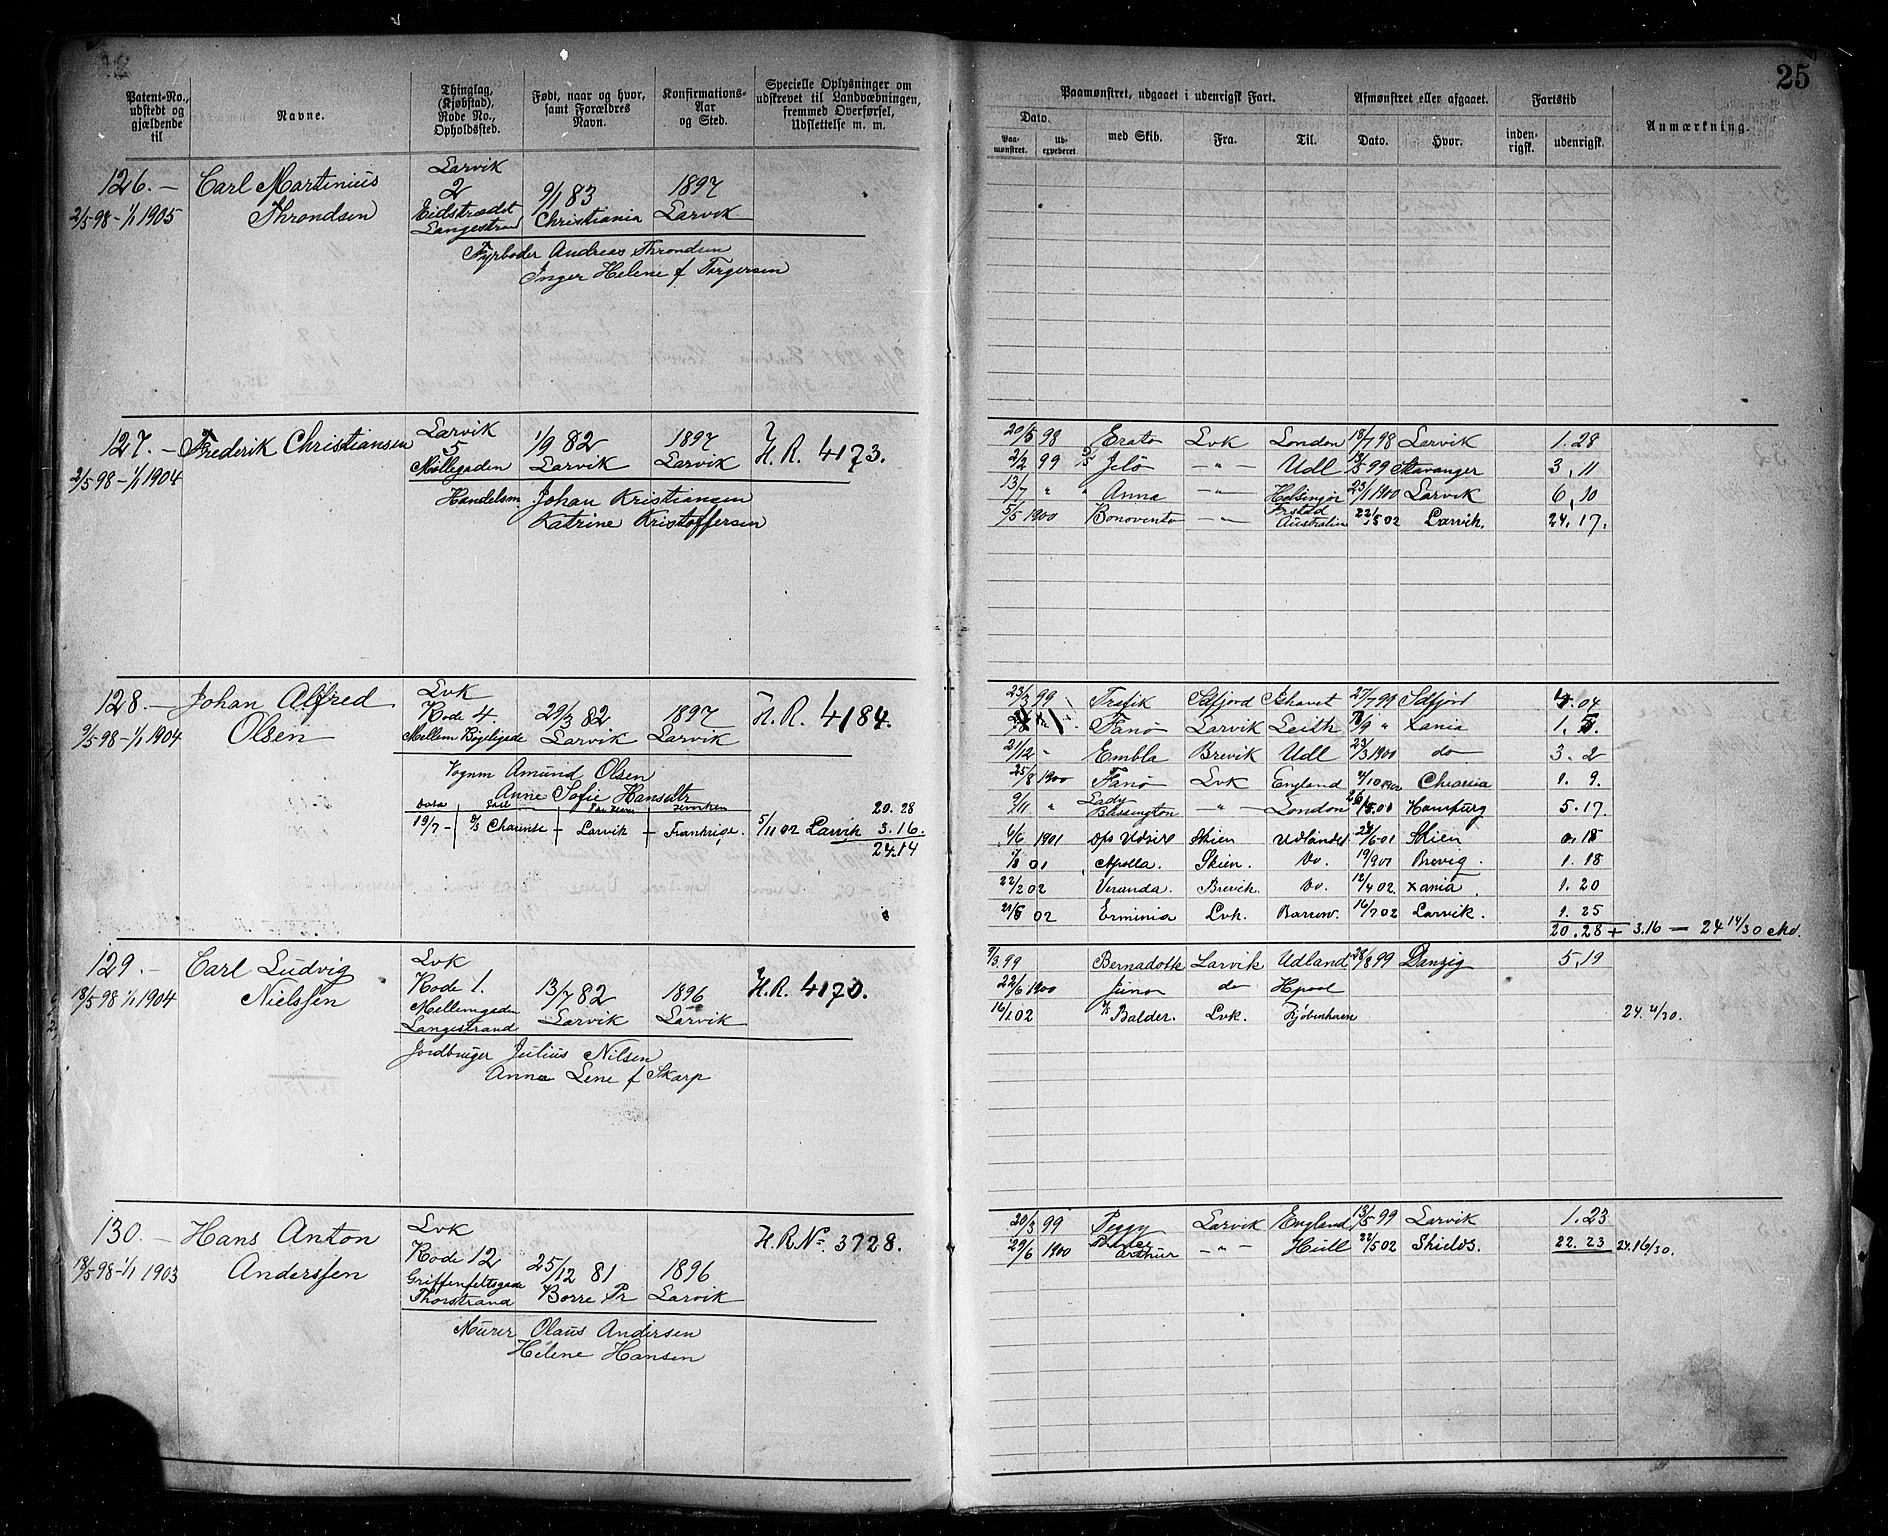 25
Patent-No., udstedt og gjældende til
Navne.
Thinglag, (Kjøbstad), Rode No., Opholdssted.
Født, naar og hvor, samt Forældres Navn.
Konfirmations- Aar og Sted.
Specielle Oplysninger om udskrevet til Landværningen, fremmed Overførsel, Udslettelse m. m.
Paamønstret, udgaaet i udenrigsk Fart.
Afmønstret eller afgaaet.
Fartstid
Anmærkning.
Dato.
Paa- mønstret.
Ud- expederet.
med Skib.
Fra.
Til.
Dato.
Hvor.
inden- rigsk.
udenrigsk.
126. — Carl Martinius Larvik
2 9/1 83 1897
2/5 98 - 1/1 1905 Throndsen Eidstrædet Christiania Larvik
Langestrand
Fyrbøder Andreas Throndsen
Inger Helene f Torgersen
127. — Fredrik Christiansen Larvik
5 1/9 82 1897 H.R. 4173.
2/5 98 - 1/1 1904 Møllegaden Larvik Larvik
Handelsm Johan Kristiansen
Katrine Kristoffersen
20/5 98 Erato Lvk London 18/7 98 Larvik 1.28
2/2 99 Jelø — " — Udl 13/5 99 Stavanger 3.11
13/7 " " Anna — " — Helsingør 23/1 1900 Larvik 6.10
5/5 1900 Bonovento — " — Australien 22/5 02 Larvik. 24.17.
128. — Johan Alfred Lvk
Rode 4. 29/3 82 1897 H.R. 4184.
9/5 98 - 1/1 1904 Olsen Mellem Bøgeligade Larvik Larvik
Vognm Amund Olsen
Anne Sofie Hansdtr
20.28
19/7 - Charente - Larvik - Frankrige. 5/11 02 Larvik 3.16.
24.14
23/3 99 Trafik Sdfjord Gravet 27/7 99 Sdfjord 4.04
Fanø Larvik Leith 7/9 " Xania 1.
21/12 - Embla Brevik Udl 23/3 1900 do 3.2
25/8 1900 Fanø Lvk England Chrania 1.9.
9/11 " Lady Blessington — " — London Hamburg 5.17.
4/6 1901 Dps Udsire Skien Udlandet 01 Skien 0.15
7/8 01 Apolla. Skien. Do. 19/9 01 Brevig. 1.18
22/2 02 Veranda. Brevik. Do. 12/4 02 Xania. 1.20
21/5 02 Erminia Lvk. Barrow. 16/7 02 Larvik. 1.25
20.28 + 3.16 — 24 14/30 Md.
129. — Carl Ludvig Lvk
Rode 1. 13/7 82 1896 H.R. 4170.
18/5 98 1/1 1904 Nielssen Mellemgaden Larvik Larvik
Langestrand
Jordbruger Julius Nilsen
Anna Lene f Skarp
9/3 99 Bernadotte Larvik Udland 28/8 99 Danzig 5.19
22/6 1900 Juno do Hpool
16/1 02 Balder. Lvk. Kjøbenhavn 24.
130. — Hans Anton Lvk
Rode 12 25/12 81 1896 H.R.No. 3728.
18/5 98 - 1/1 1903 Anderssen Griffenfeltsgade Borre Pr Larvik
Thorstrand
Murer Olaus Andersen
Helene Hansen
20/3 99 Peggy Larvik England 13/5 99 Larvik 1.23
29/6 1900 Prince Arthur — " — Hull 22/5 02 Shields. 22.23 24.16/30.